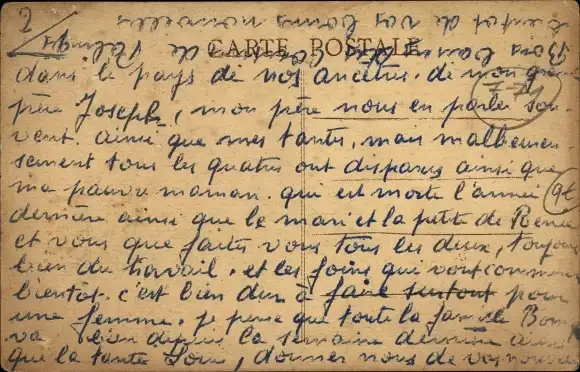 2
à bientot de vos bonnes nouvelles
Bons baisers
de
CARTE POSTALE
dans le pays de nos ancetres. de mon grand
père Joseph, mon père nous en parler sou-
vent. ainsi que mes tantes, mais malheureu-
sement tous les quatres ont disparus ainsi que
ma pauvre maman. qui est morte l'année
dernière ainsi que le mari et la petite de Renée
et vous que faites vous tous les deux, toujours
bien du travail. et les foins qui vont commencer
bientot. c'est bien dur à faire surtout pour
une femme. je pense que toute la famille Bon
va bien depuis la semaine dernière ainsi
que la tante, donner nous de vos nouvelles